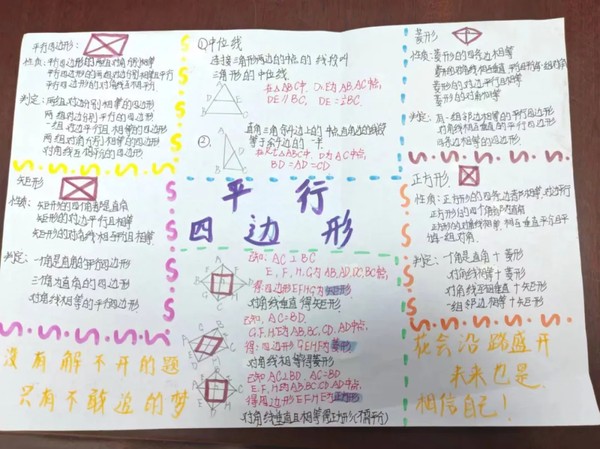 平行四边形:
性质: 平行四边形的两组对角分别相等
平行四边形的两组对边分别相等且平行
平行四边形的对角线互相平分
判定: 两组对边分别相等的四边形
两组对边分别平行的四边形
一组对边平行且相等的四边形
两组对角分别相等的四边形
对角线互相平分的四边形
①中位线
连接三角形两边的中点的线段叫
三角形的中位线
在△ABC中, D、E为AB, AC中点,
DE∥BC, DE=½BC.
②
直角三角形斜边上的中线
等于斜边的一半
在Rt△ABC中, D为AC中点,
BD=AD=CD
菱形
性质: 菱形的四条边相等
菱形的对边平行且相等
菱形的对角相等
判定: 有一组邻边相等的平行四边形
对角线相互垂直的平行四边形
四条边相等的四边形
矩形
性质: 矩形的四个角都是直角
矩形的对边平行且相等
矩形的对角线相等
判定: 一个角是直角的平行四边形
三个角为直角的四边形
对角线相等的平行四边形
平行
四边形
正方形
性质: 正方形的四条边都相等, 对边平行
正方形的四个角都为直角
正方形的对角线相等, 相互垂直平分且平
分一组对角.
判定: 一个角是直角+菱形
对角线相等+菱形
对角线互相垂直+矩形
一组邻边相等+矩形
已知, AC⊥BC
E, F, H, G为AB, AD, DC, BC中点,
得: 四边形EFHG为矩形.
对角线垂直得矩形
已知, AC=BD,
G, F, H, E为AB, BC, CD, AD中点,
得: 四边形GEHF为菱形
对角线相等得菱形
已知 AC⊥BD, AC=BD
E, F, H, E为AB, BC, CD, AD中点,
得四边形EFHE为正方形
对角线垂直且相等得正方形(不需平分)
没有解不开的题
只有不敢追的梦
花会沿路盛开
未来也是
相信自己!